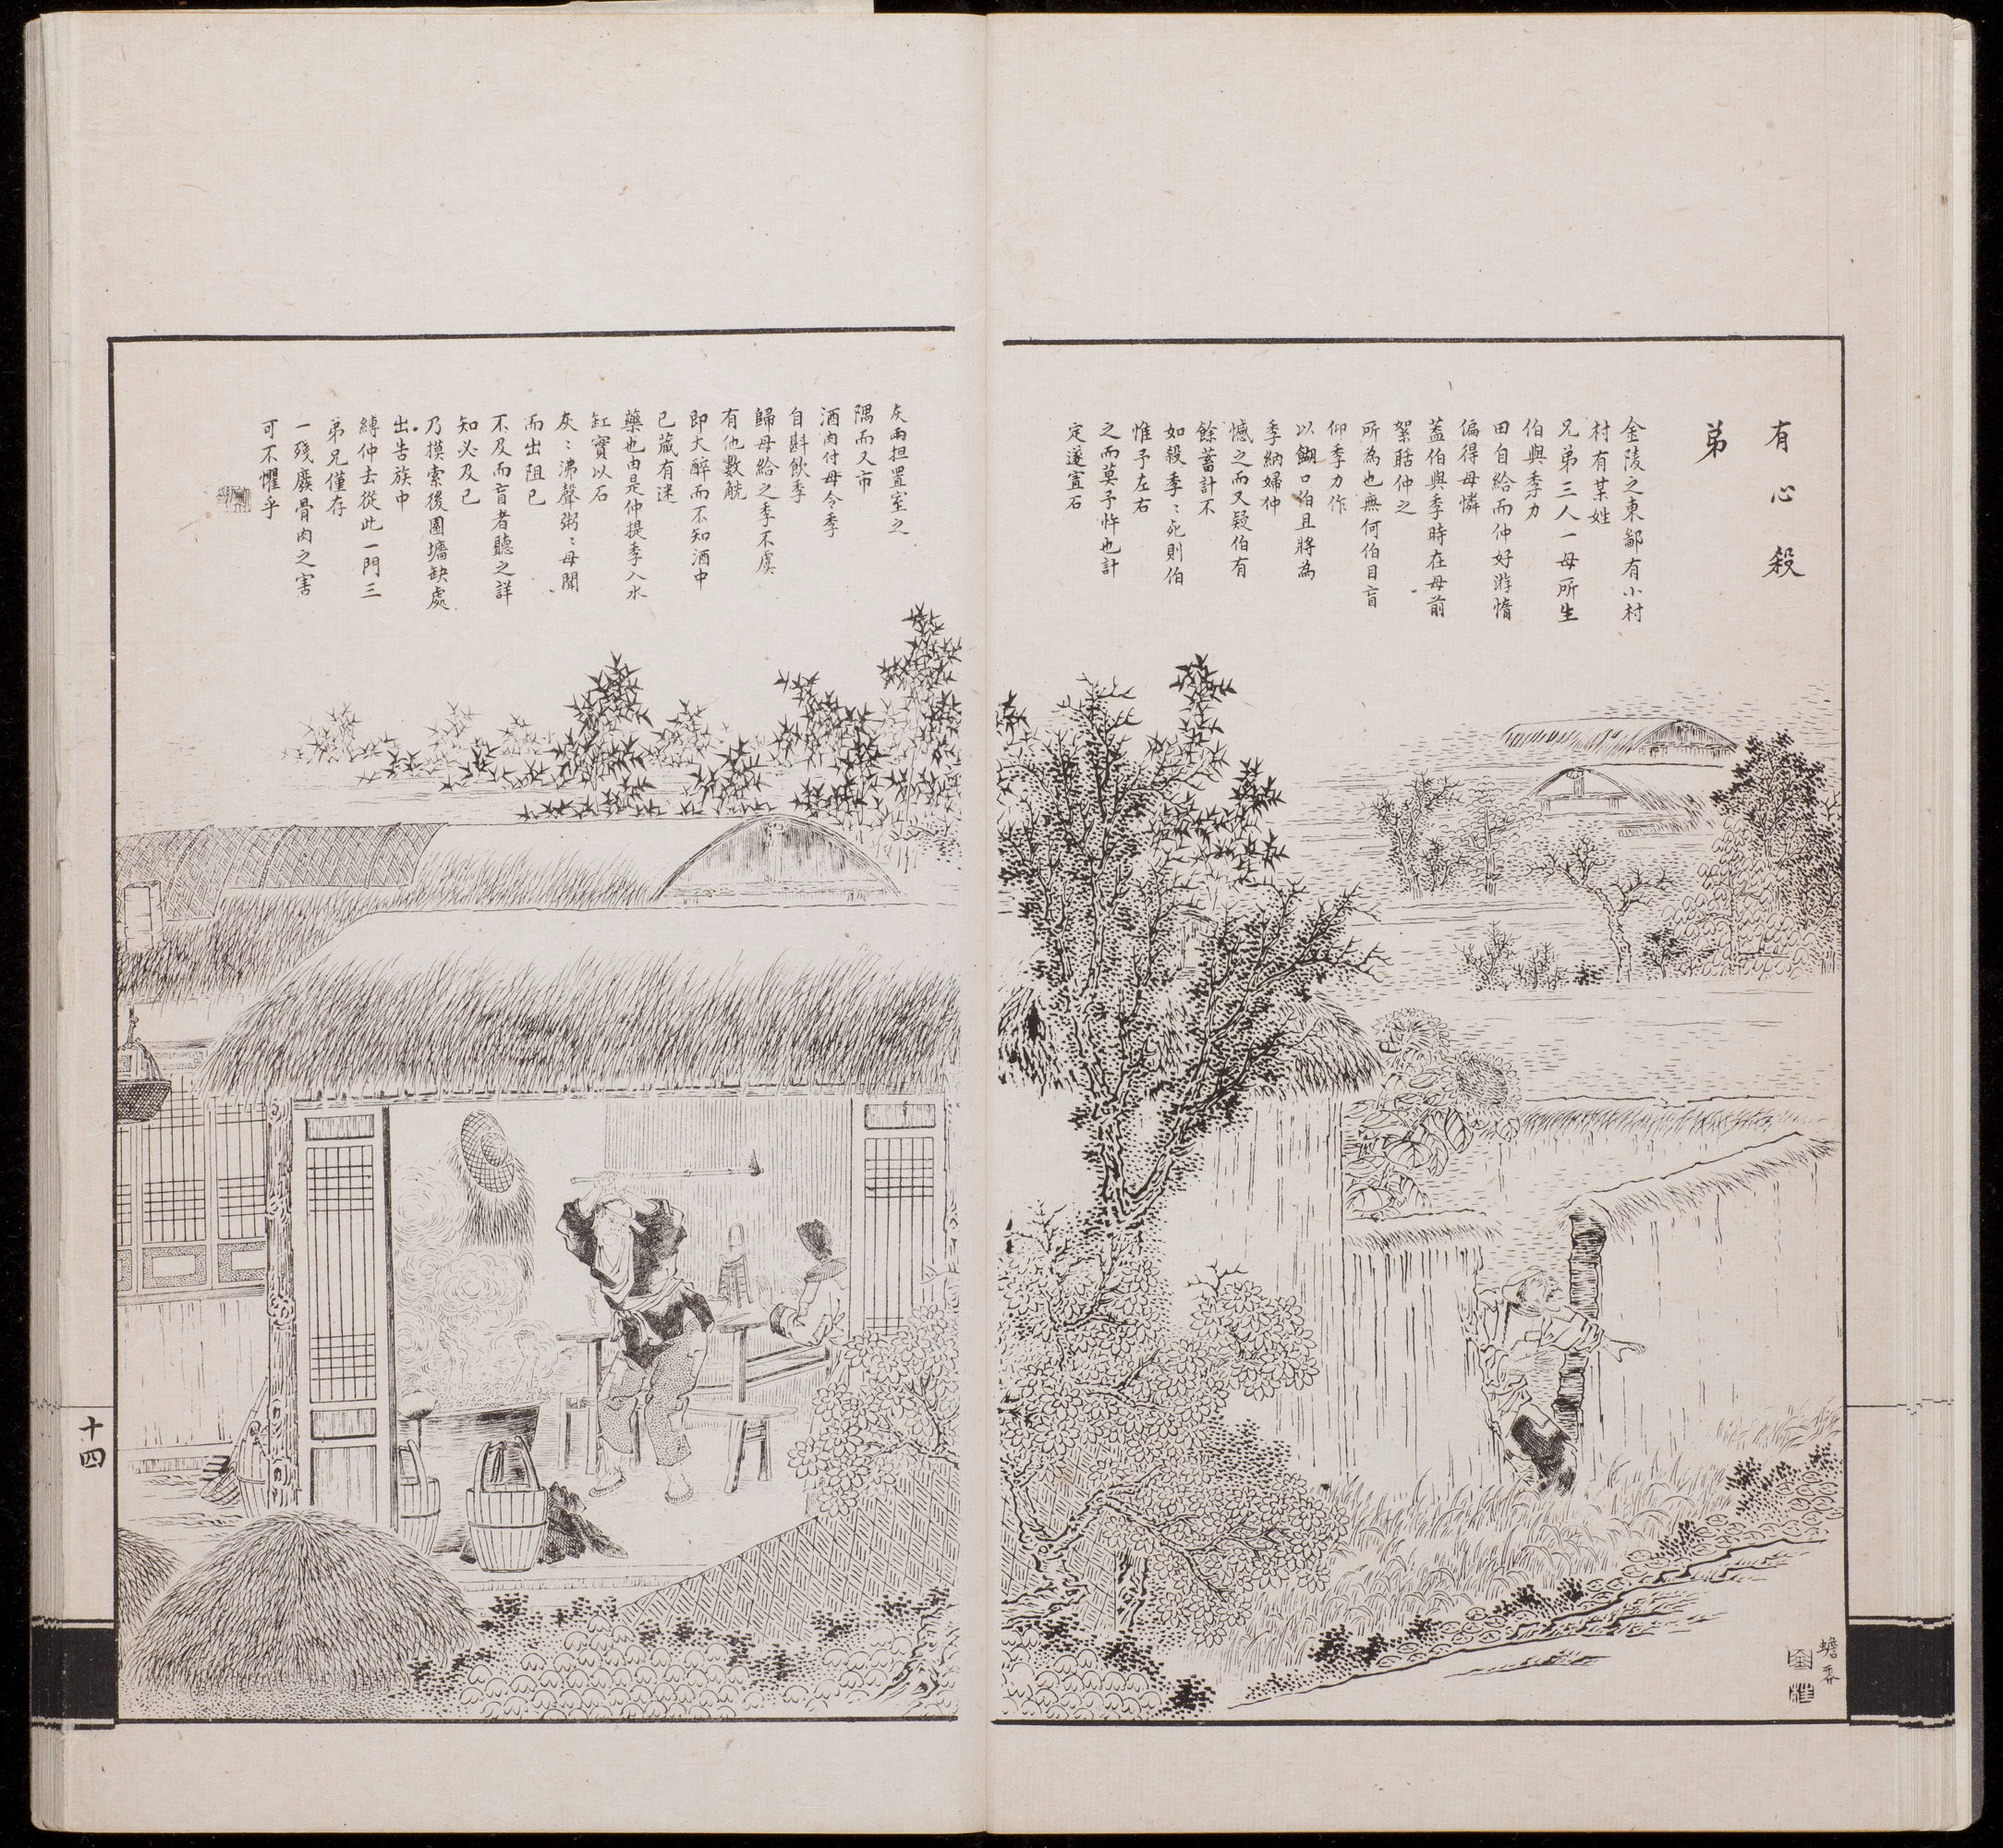 有心殺
弟
金陵之東鄙有小村
村有某姓
兄弟三人一母所生
伯與季力
田自給而仲好游惰
偏得母憐
蓋伯與季時在母前
絮聒仲之
所為也無何伯目盲
仰季力作
以餬口伯且將為
季納婦仲
憾之而又疑伯有
餘蓄計不
如殺季〻死則伯
惟予左右
之而莫予忤也計
定遂置石
灰兩担置室之
隅而又市
酒肉付母令季
自斟飲季
歸母給之季不虞
有他數觥
即大醉而不知酒中
已藏有迷
藥也由是仲提季入水
缸實以石
灰〻沸聲粥〻母聞
而出阻已
不及而盲者聽之詳
知必及己
乃摸索後園墻缺處
出告族中
縛仲去從此一門三
弟兄僅存
一殘廢骨肉之害
可不懼乎
蟾香
十四